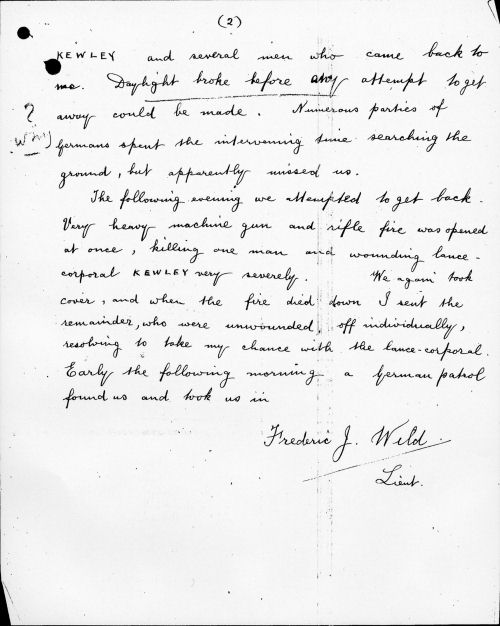 (2)
KEWLEY and several men who came back to
me. Daylight broke before any attempt to get
away could be made. Numerous parties of
? why
Germans spent the intervening time searching the
ground, but apparently missed us.
The following evening we attempted to get back.
Very heavy machine gun and rifle fire was opened
at once, killing one man and wounding lance-
corporal KEWLEY very severely. We again took
cover, and when the fire died down I sent the
remainder, who were unwounded, off individually,
resolving to take my chance with the lance-corporal.
Early the following morning a German patrol
found us and took us in
Frederic J. Wild.
Lieut.